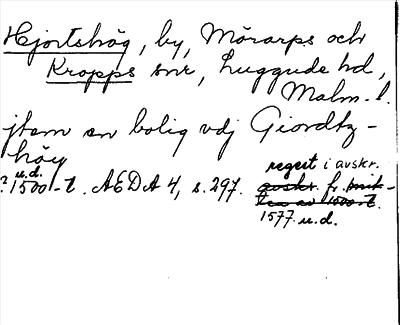 Hjortshög, by, Mörarps och
Kropps snr, Luggude hd,
Malm. l.
jtem en bolig vdj Giordtz-
höy
u.d.
? 1500-t. AEDA 4, s. 297. regest i avskr.
avskr. fr.
1577 u.d.